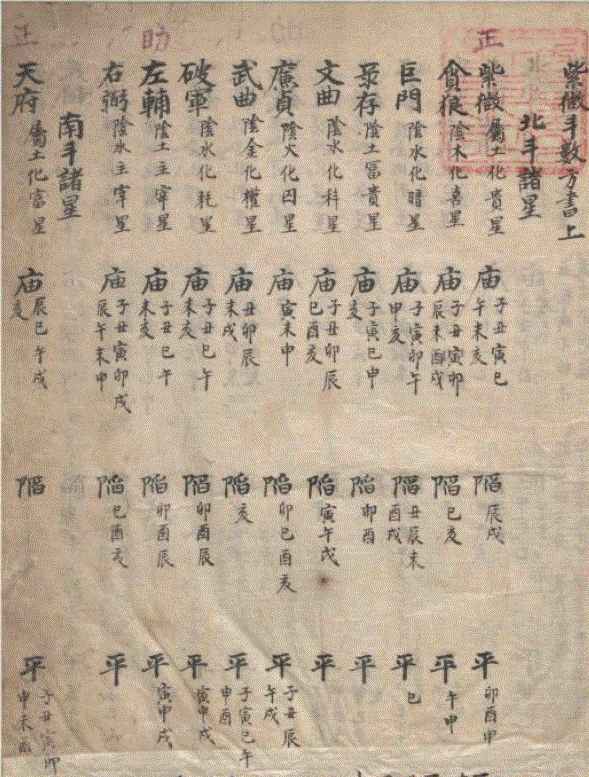 紫微斗数方書上
北斗諸星
紫微屬土化貴星 庙子丑寅巳午未亥 陷辰戌 平卯酉申
貪狼陰木化喜星 庙子丑寅卯辰未酉戌 陷巳亥 平午申
巨門陰水化暗星 庙子寅卯午申亥 陷丑辰未酉戌 平巳
录存陰土富貴星 庙子寅巳申亥 陷卯酉 平
文曲陰水化科星 庙子丑卯辰巳酉亥 陷寅午戌 平
廉貞陰火化囚星 庙寅未申 陷卯巳酉亥 平子丑辰午戌
武曲陰金化權星 庙丑卯辰未戌 陷亥 平子寅巳午申酉
破軍陰水化耗星 庙子丑巳午未亥 陷卯酉辰 平寅申戌
左輔陰土主宰星 庙子丑巳午未亥 陷卯酉辰 平寅申戌
右弼陰水主宰星 庙子丑寅卯戌辰午未申 陷巳酉亥 平
南斗諸星
天府屬土化富星 庙辰巳午戌亥 陷 平子丑寅卯申未酉
正